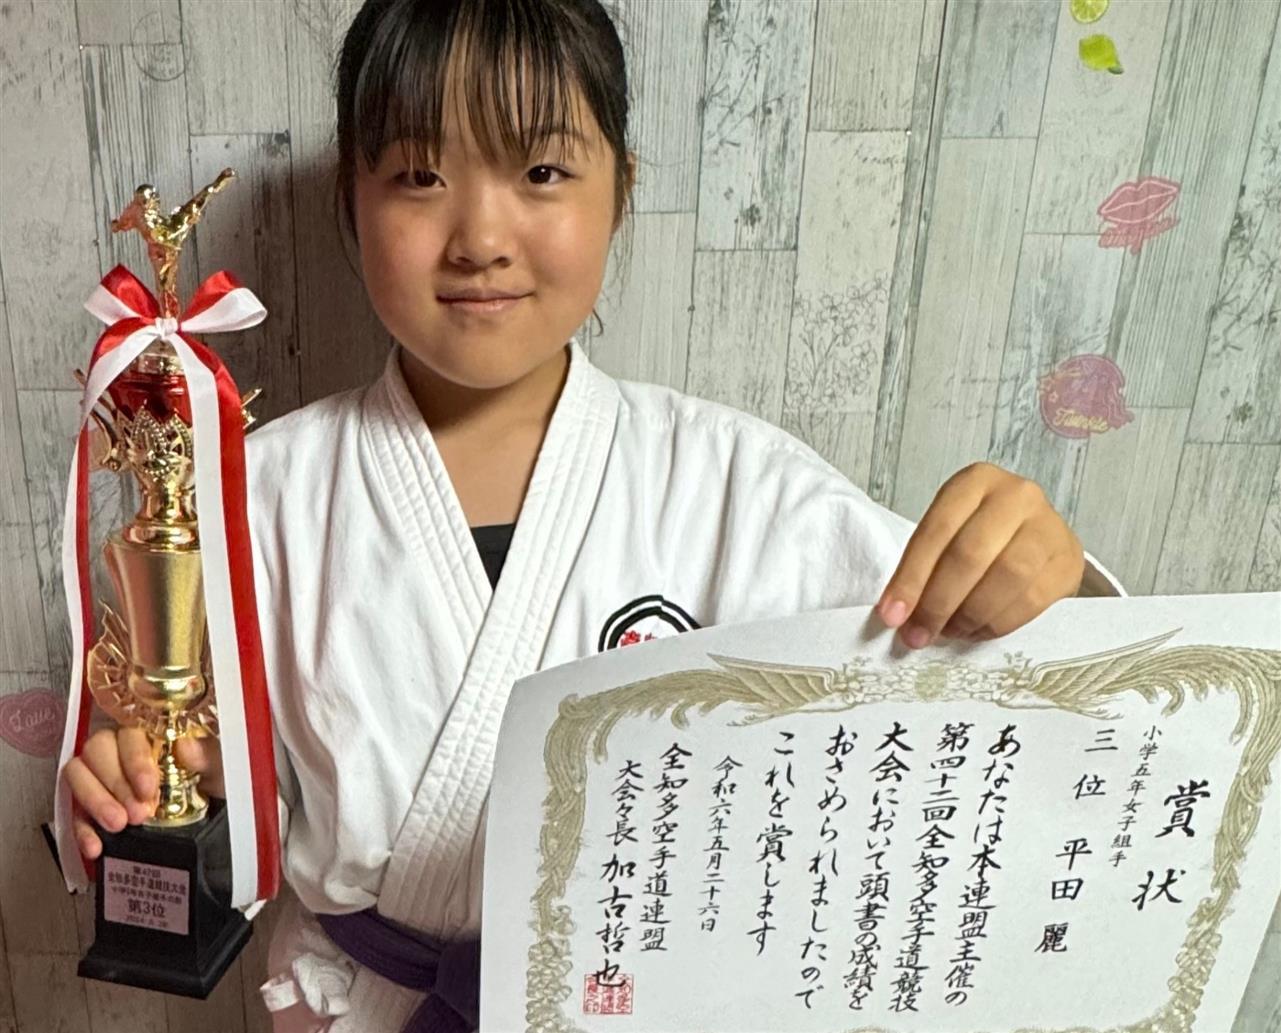 賞状
小学五年女子組手
三位 平田 麗
あなたは本連盟主催の
第四十二回全知多空手道競技
大会において頭書の成績を
おさめられましたので
これを賞します
令和六年五月二十六日
全知多空手道連盟
大会々長 加古哲也
第42回
全知多空手道競技大会
第3位
Twinkle
Love